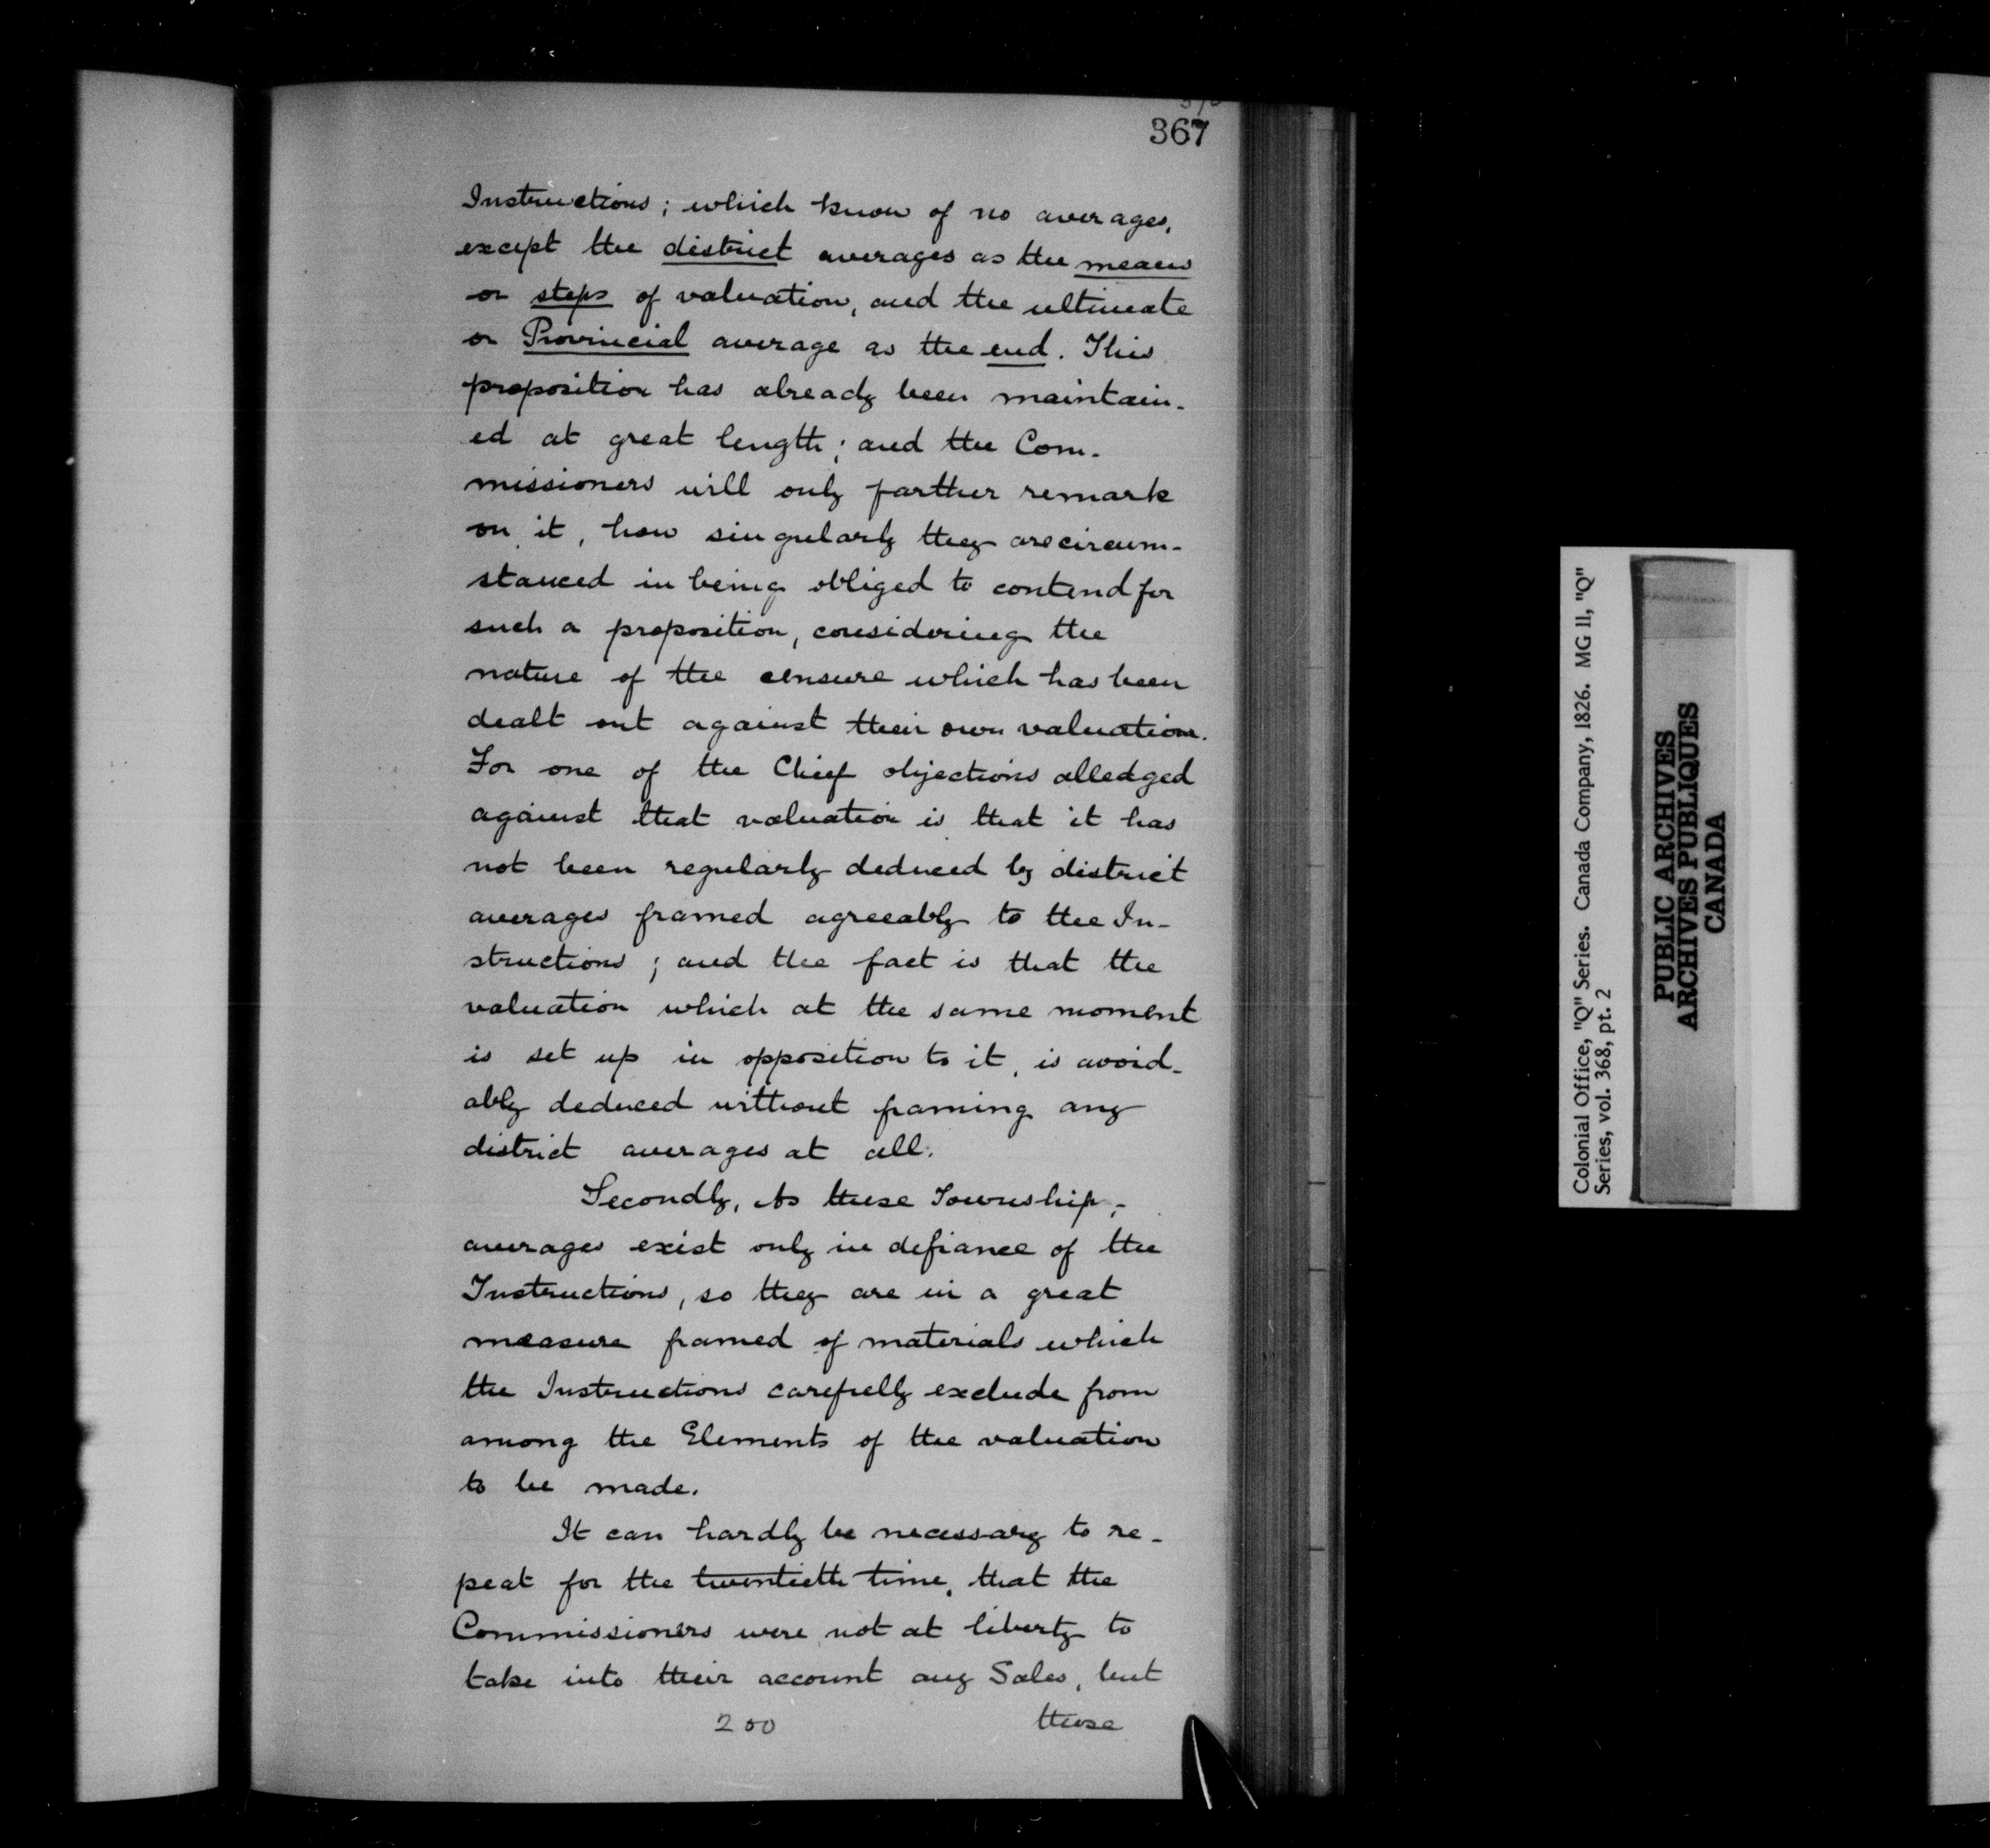 367
Instructions; which know of no averages,
except the district averages as the means
or steps of valuation, and the ultimate
or Provincial average as the end. This
proposition has already been maintain-
ed at great length; and the Com-
missioners will only farther remark
on it, how singularly they are circum-
stanced in being obliged to contend for
such a proposition, considering the
nature of the censure which has been
dealt out against their own valuation.
For one of the Chief objections alledged
against that valuation is that it has
not been regularly deduced by district
averages framed agreeably to the In-
structions; and the fact is that the
valuation which at the same moment
is set up in opposition to it, is avoid-
ably deduced without framing any
district averages at all.
Secondly, As these Township-
averages exist only in defiance of the
Instructions, so they are in a great
measure framed of materials which
the Instructions carefully exclude from
among the Elements of the valuation
to be made.
It can hardly be necessary to re-
peat for the twentieth time, that the
Commissioners were not at liberty to
take into their account any Sales, but
200 those
Colonial Office, "Q" Series. Canada Company, 1826. MG 11, "Q"
Series, vol. 368, pt. 2
PUBLIC ARCHIVES
ARCHIVES PUBLIQUES
CANADA